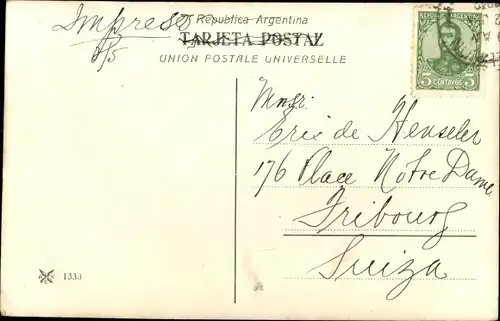 Impreso
República Argentina
TARJETA POSTAL
UNION POSTALE UNIVERSELLE
REPUBLICA ARGENTINA
5 5
CENTAVOS
Eric de Henseler
176 Place Notre Dame
Fribourg
Suiza
1333